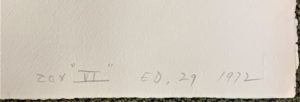 zox "VI" ED. 29 1972